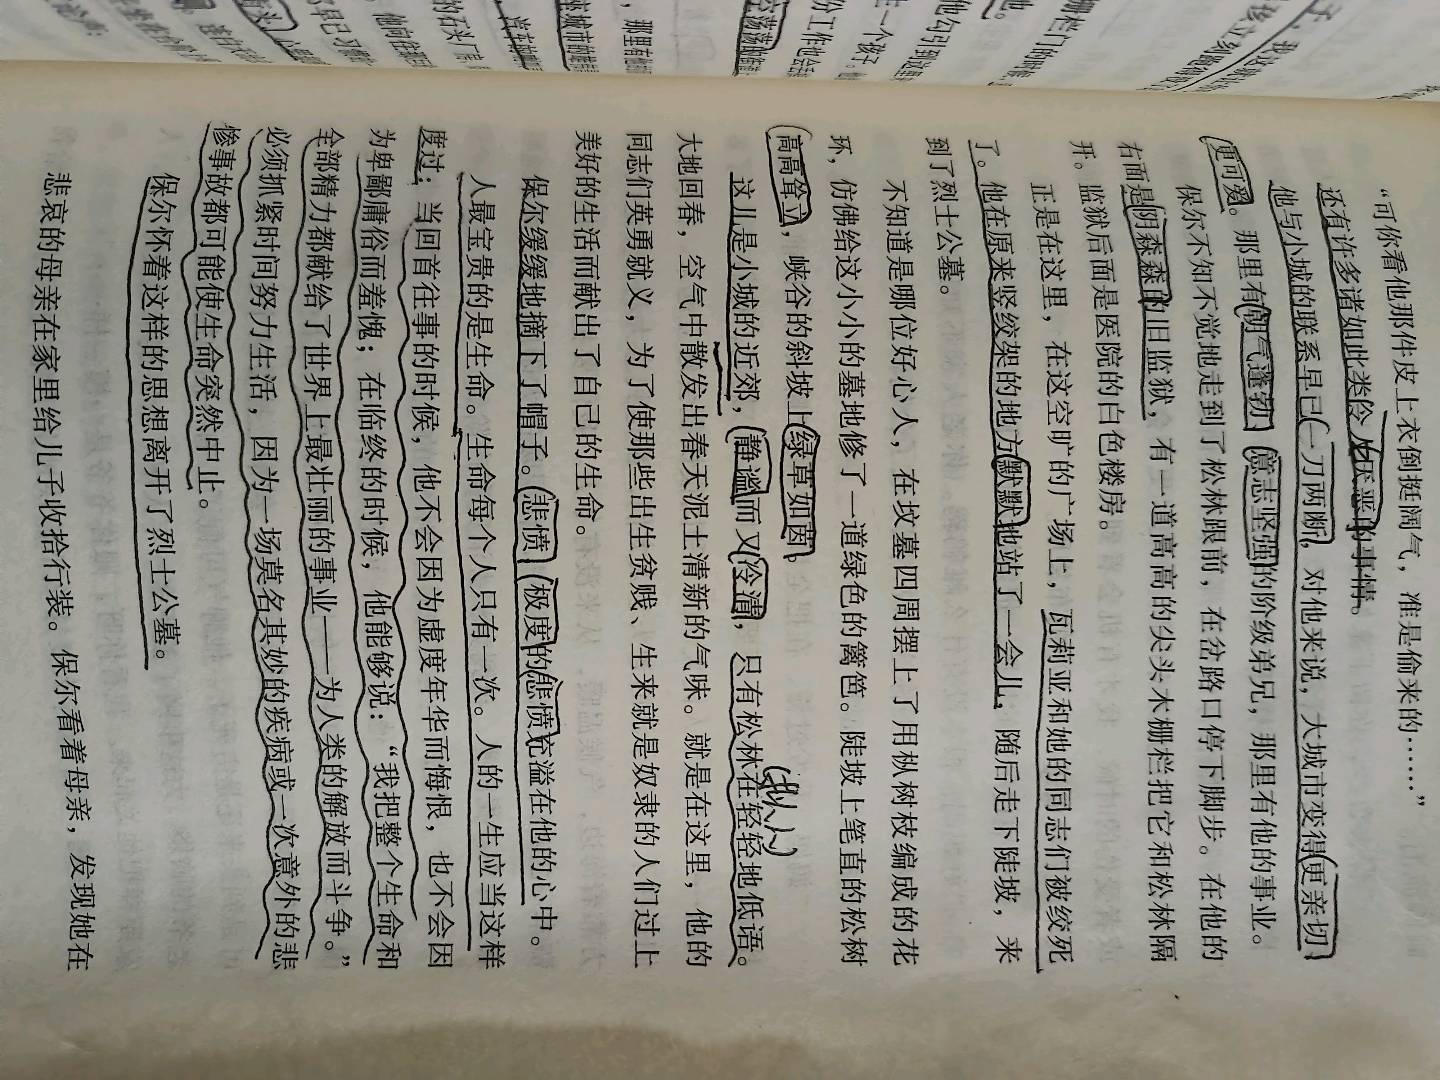 “可你看他那件皮上衣倒挺阔气，准是偷来的……”
还有许多诸如此类令人厌恶的事情。
他与小城的联系早已一刀两断，对他来说，大城市变得更亲切
更可爱。那里有朝气蓬勃、意志坚强的阶级弟兄，那里有他的事业。
保尔不知不觉地走到了松林跟前，在岔路口停下脚步。在他的
右面是阴森森的旧监狱，有一道高高的尖头木栅栏把它和松林隔
开。监狱后面是医院的白色楼房。
正是在这里，在这空旷的广场上，瓦莉亚和她的同志们被绞死
了。他在原来竖绞架的地方默默地站了一会儿，随后走下陡坡，来
到了烈士公墓。
不知道是哪位好心人，在坟墓四周摆上了用枞树枝编成的花
环，仿佛给这小小的墓地修了一道绿色的篱笆。陡坡上笔直的松树
高高耸立，峡谷的斜坡上绿草如茵。
这儿是小城的近郊，静谧而又冷清，只有松林在轻轻地低语。
(拟人)
大地回春，空气中散发出春天泥土清新的气味。就是在这里，他的
同志们英勇就义，为了使那些出生贫贱、生来就是奴隶的人们过上
美好的生活而献出了自己的生命。
保尔缓缓地摘下了帽子。悲愤，极度的悲愤充溢在他的心中。
人最宝贵的是生命。生命每个人只有一次。人的一生应当这样
度过：当回首往事的时候，他不会因为虚度年华而悔恨，也不会因
为卑鄙庸俗而羞愧；在临终的时候，他能够说：“我把整个生命和
全部精力都献给了世界上最壮丽的事业——为人类的解放而斗争。”
必须抓紧时间努力生活，因为一场莫名其妙的疾病或一次意外的悲
惨事故都可能使生命突然中止。
保尔怀着这样的思想离开了烈士公墓。
悲哀的母亲在家里给儿子收拾行装。保尔看着母亲，发现她在